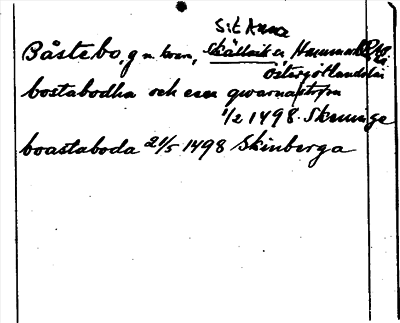 S:t Anna
Båstebo, g o. kvarn, Skällvik sn, Hammarkinds hd
Östergötlands län
bostabodha och een qwarnastrøm
1/2 1498. Skeninge
boastaboda 21/5 1498 Skinberga